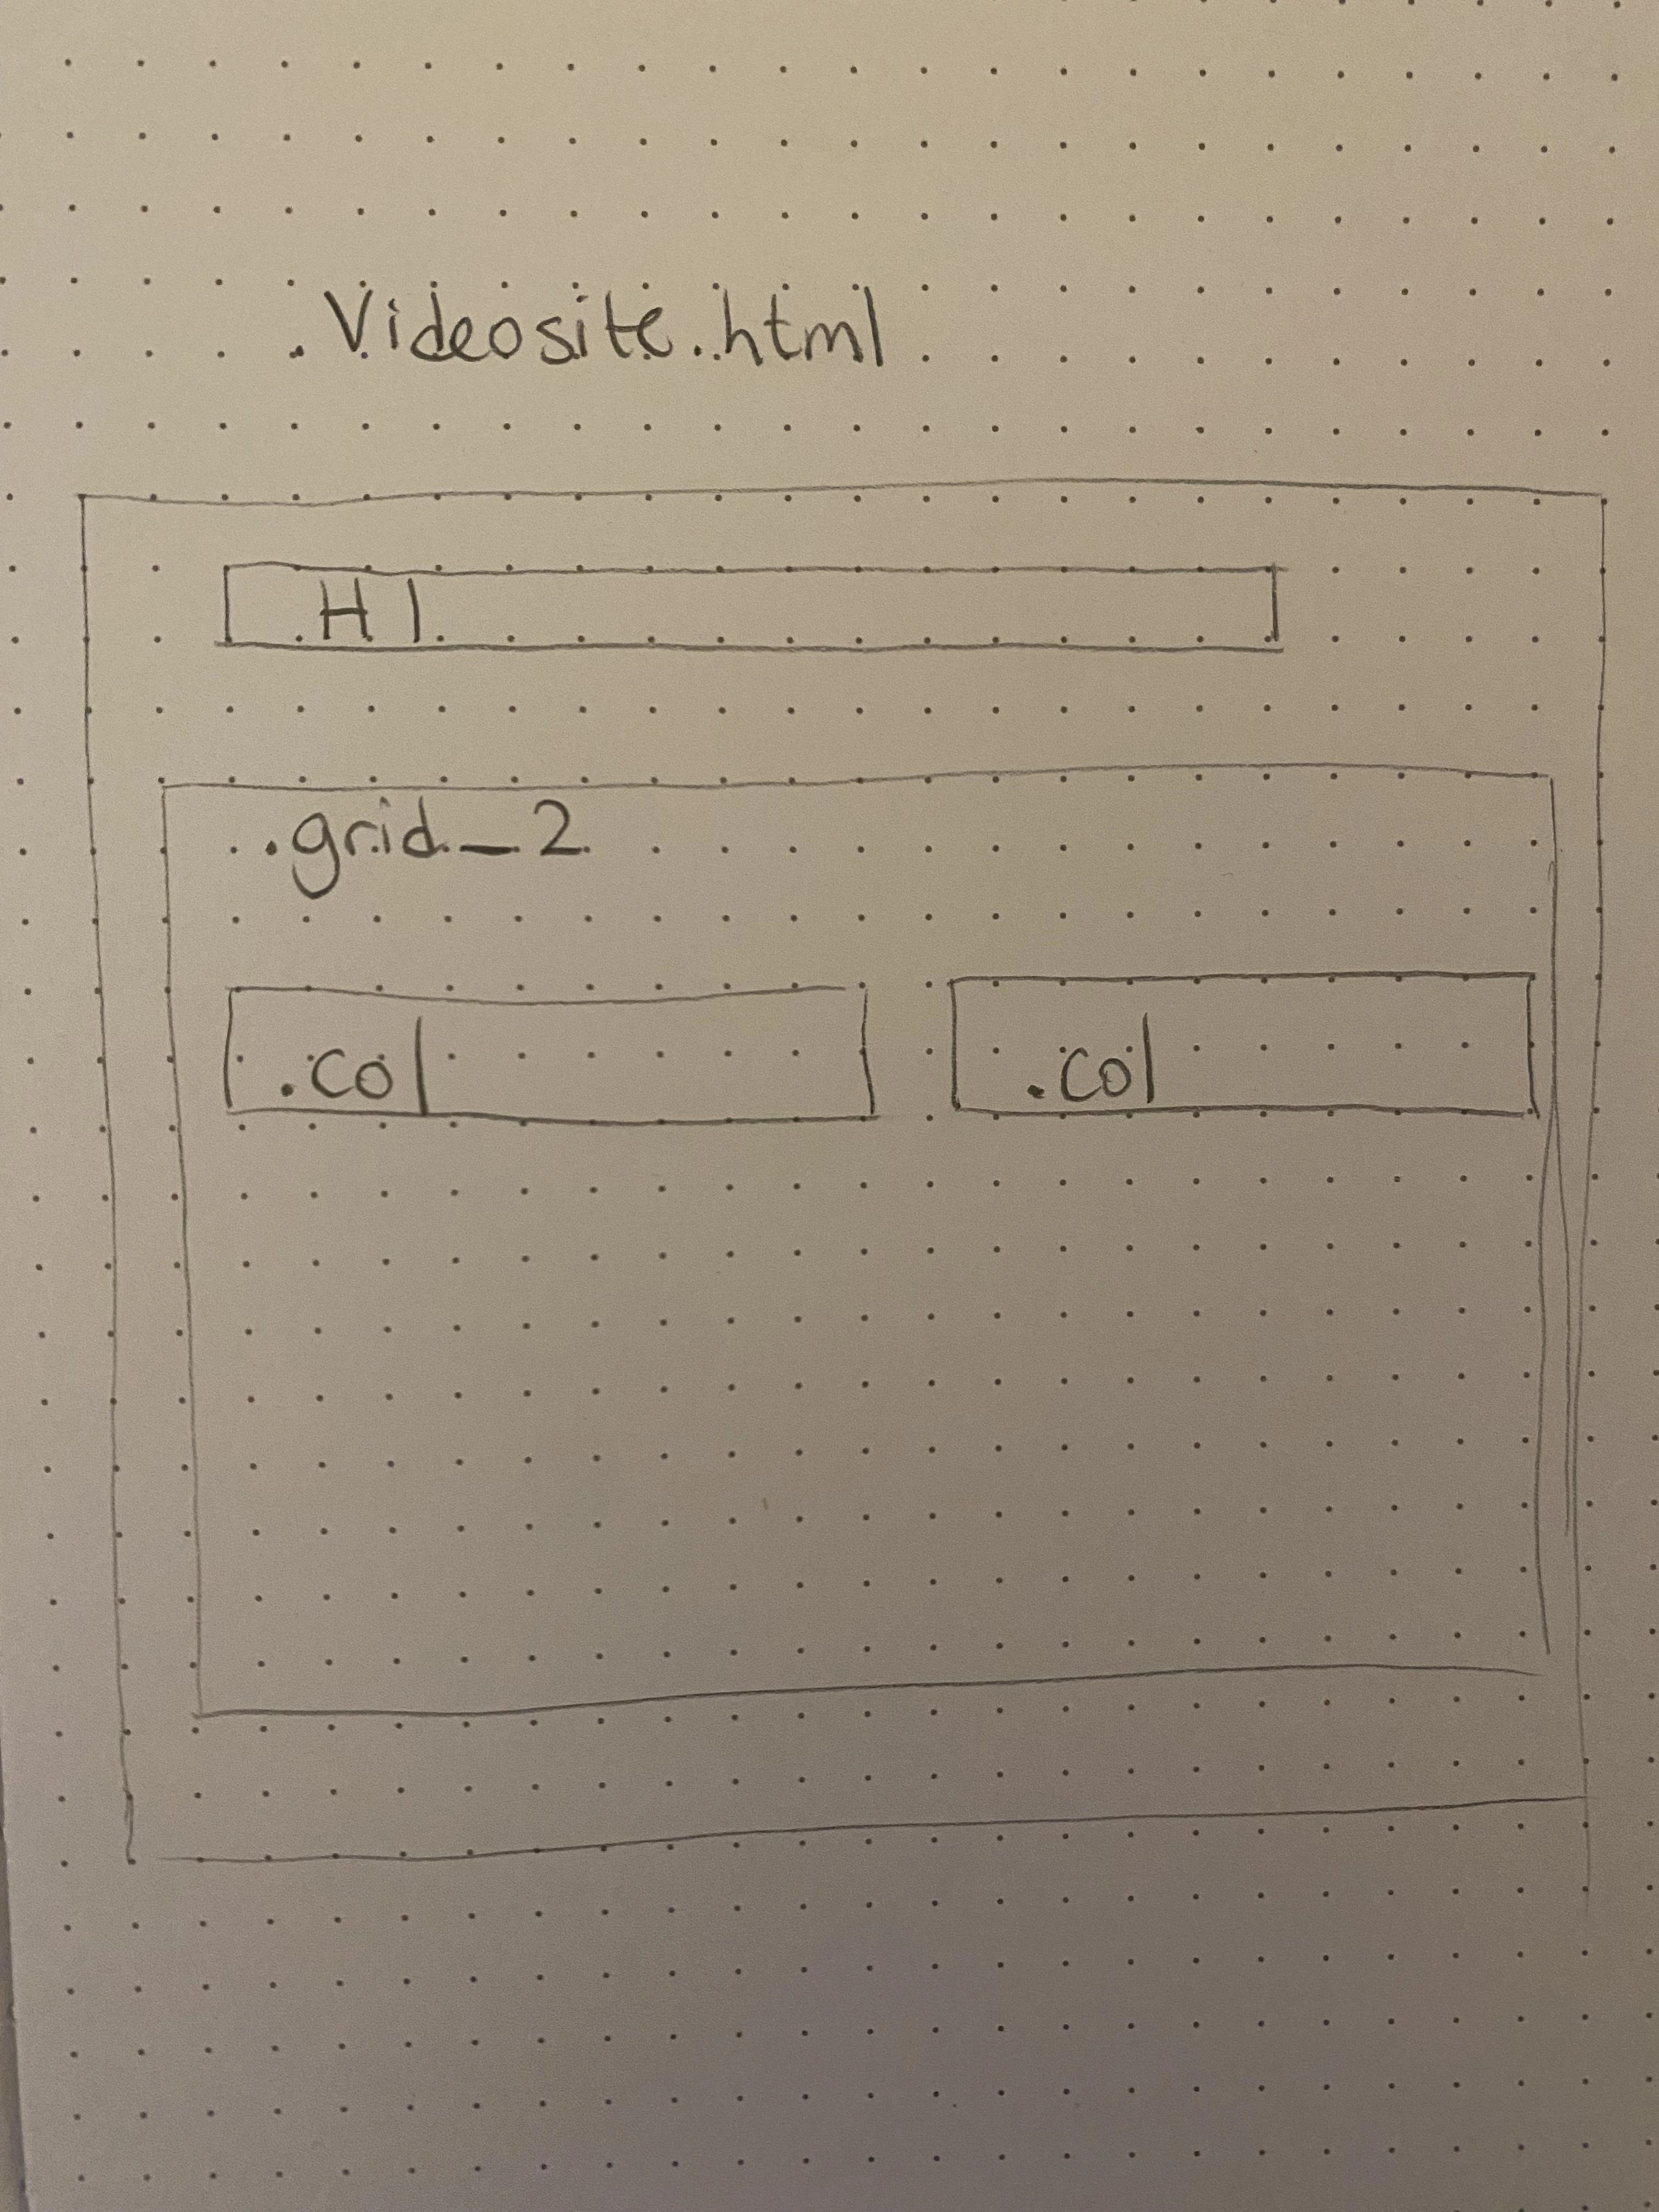 Videosite.html
H1
.grid_2
.col .col